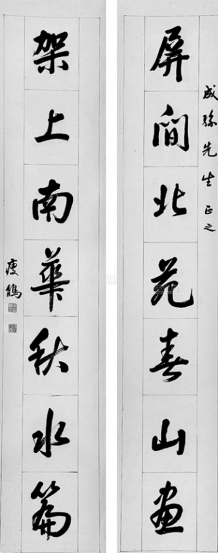 屏間北苑春山畫
成孫先生正之
架上南華秋水篇
瘦鶴